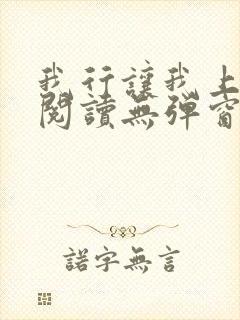 我行讓我上
閱讀無彈窗
諾字無言